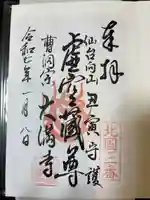 奉拝
仙台向山 丑寅守護
虚空蔵尊
曹洞宗 大満寺
令和七年一月八日
北国三番